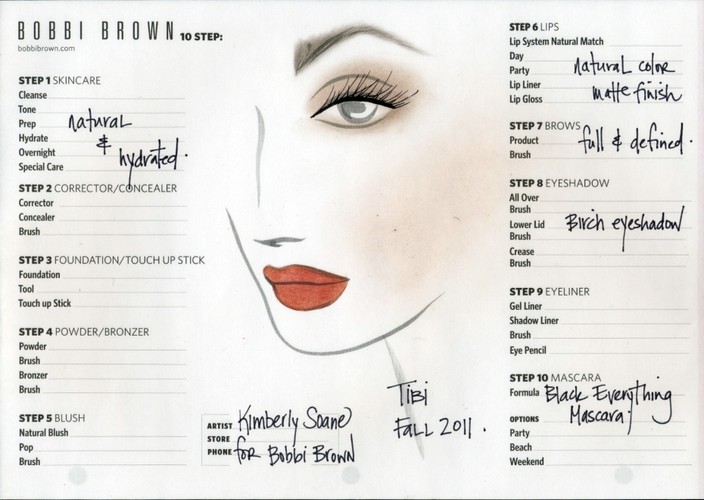 BOBBI BROWN 10 STEP:
bobbibrown.com
STEP 1 SKINCARE
Cleanse
Tone
Prep
Hydrate
Overnight
Special Care
natural
&
hydrated.
STEP 2 CORRECTOR/CONCEALER
Corrector
Concealer
Brush
STEP 3 FOUNDATION/TOUCH UP STICK
Foundation
Tool
Touch up Stick
STEP 4 POWDER/BRONZER
Powder
Brush
Bronzer
Brush
STEP 5 BLUSH
Natural Blush
Pop
Brush
ARTIST Kimberly Soane
STORE
PHONE for Bobbi Brown
Tibi
Fall 2011.
STEP 6 LIPS
Lip System Natural Match
Day
Party
Lip Liner
Lip Gloss
natural color
matte finish
STEP 7 BROWS
Product
Brush
full & defined.
STEP 8 EYESHADOW
All Over
Brush
Lower Lid
Brush
Crease
Brush
Birch eyeshadow
STEP 9 EYELINER
Gel Liner
Shadow Liner
Brush
Eye Pencil
STEP 10 MASCARA
Formula Black Everything
Mascara
OPTIONS
Party
Beach
Weekend